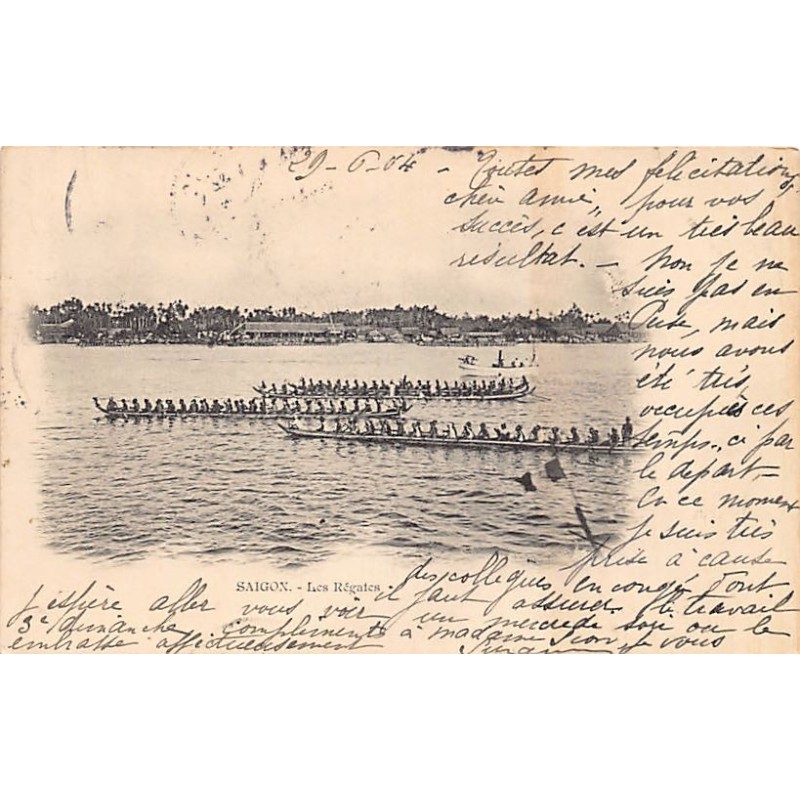 29-6-04 - Toutes mes félicitations,
chère amie, pour vos
succès, c'est un très beau
résultat. - Non je ne
suis pas en
mais
nous avons
été très
occupées ces
temps-ci par
le départ -
En ce moment
je suis très
prise à cause
des collègues en congé dont
il faut assurer le travail
J'espère aller vous voir
un mercredi soir ou le
3e dimanche compliments à madame je vous
embrasse affectueusement
SAIGON. - Les Régates